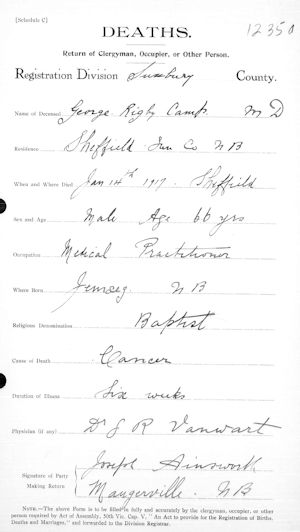 [Schedule C]
12350
DEATHS.
Return of Clergyman, Occupier, or Other Person.
Registration Division Sunbury County.
Name of Deceased George Rigby Camp M D
Residence Sheffield Sun Co N B
When and Where Died Jan 14th 1917. Sheffield
Sex and Age Male Age 66 yrs
Occupation Medical Practitioner
Where Born Jemseg N B
Religious Denomination Baptist
Cause of Death Cancer
Duration of Illness Six weeks
Physician (if any) Dr J R Vanwart
Signature of Party Making Return
Joseph Ainsworth
Maugerville N B
NOTE.—The above Form is to be filled in fully and accurately by the clergyman, occupier, or other
person required by Act of Assembly, 50th Vic. Cap. V. "An Act to provide for the Registration of Births,
Deaths and Marriages," and forwarded to the Division Registrar.